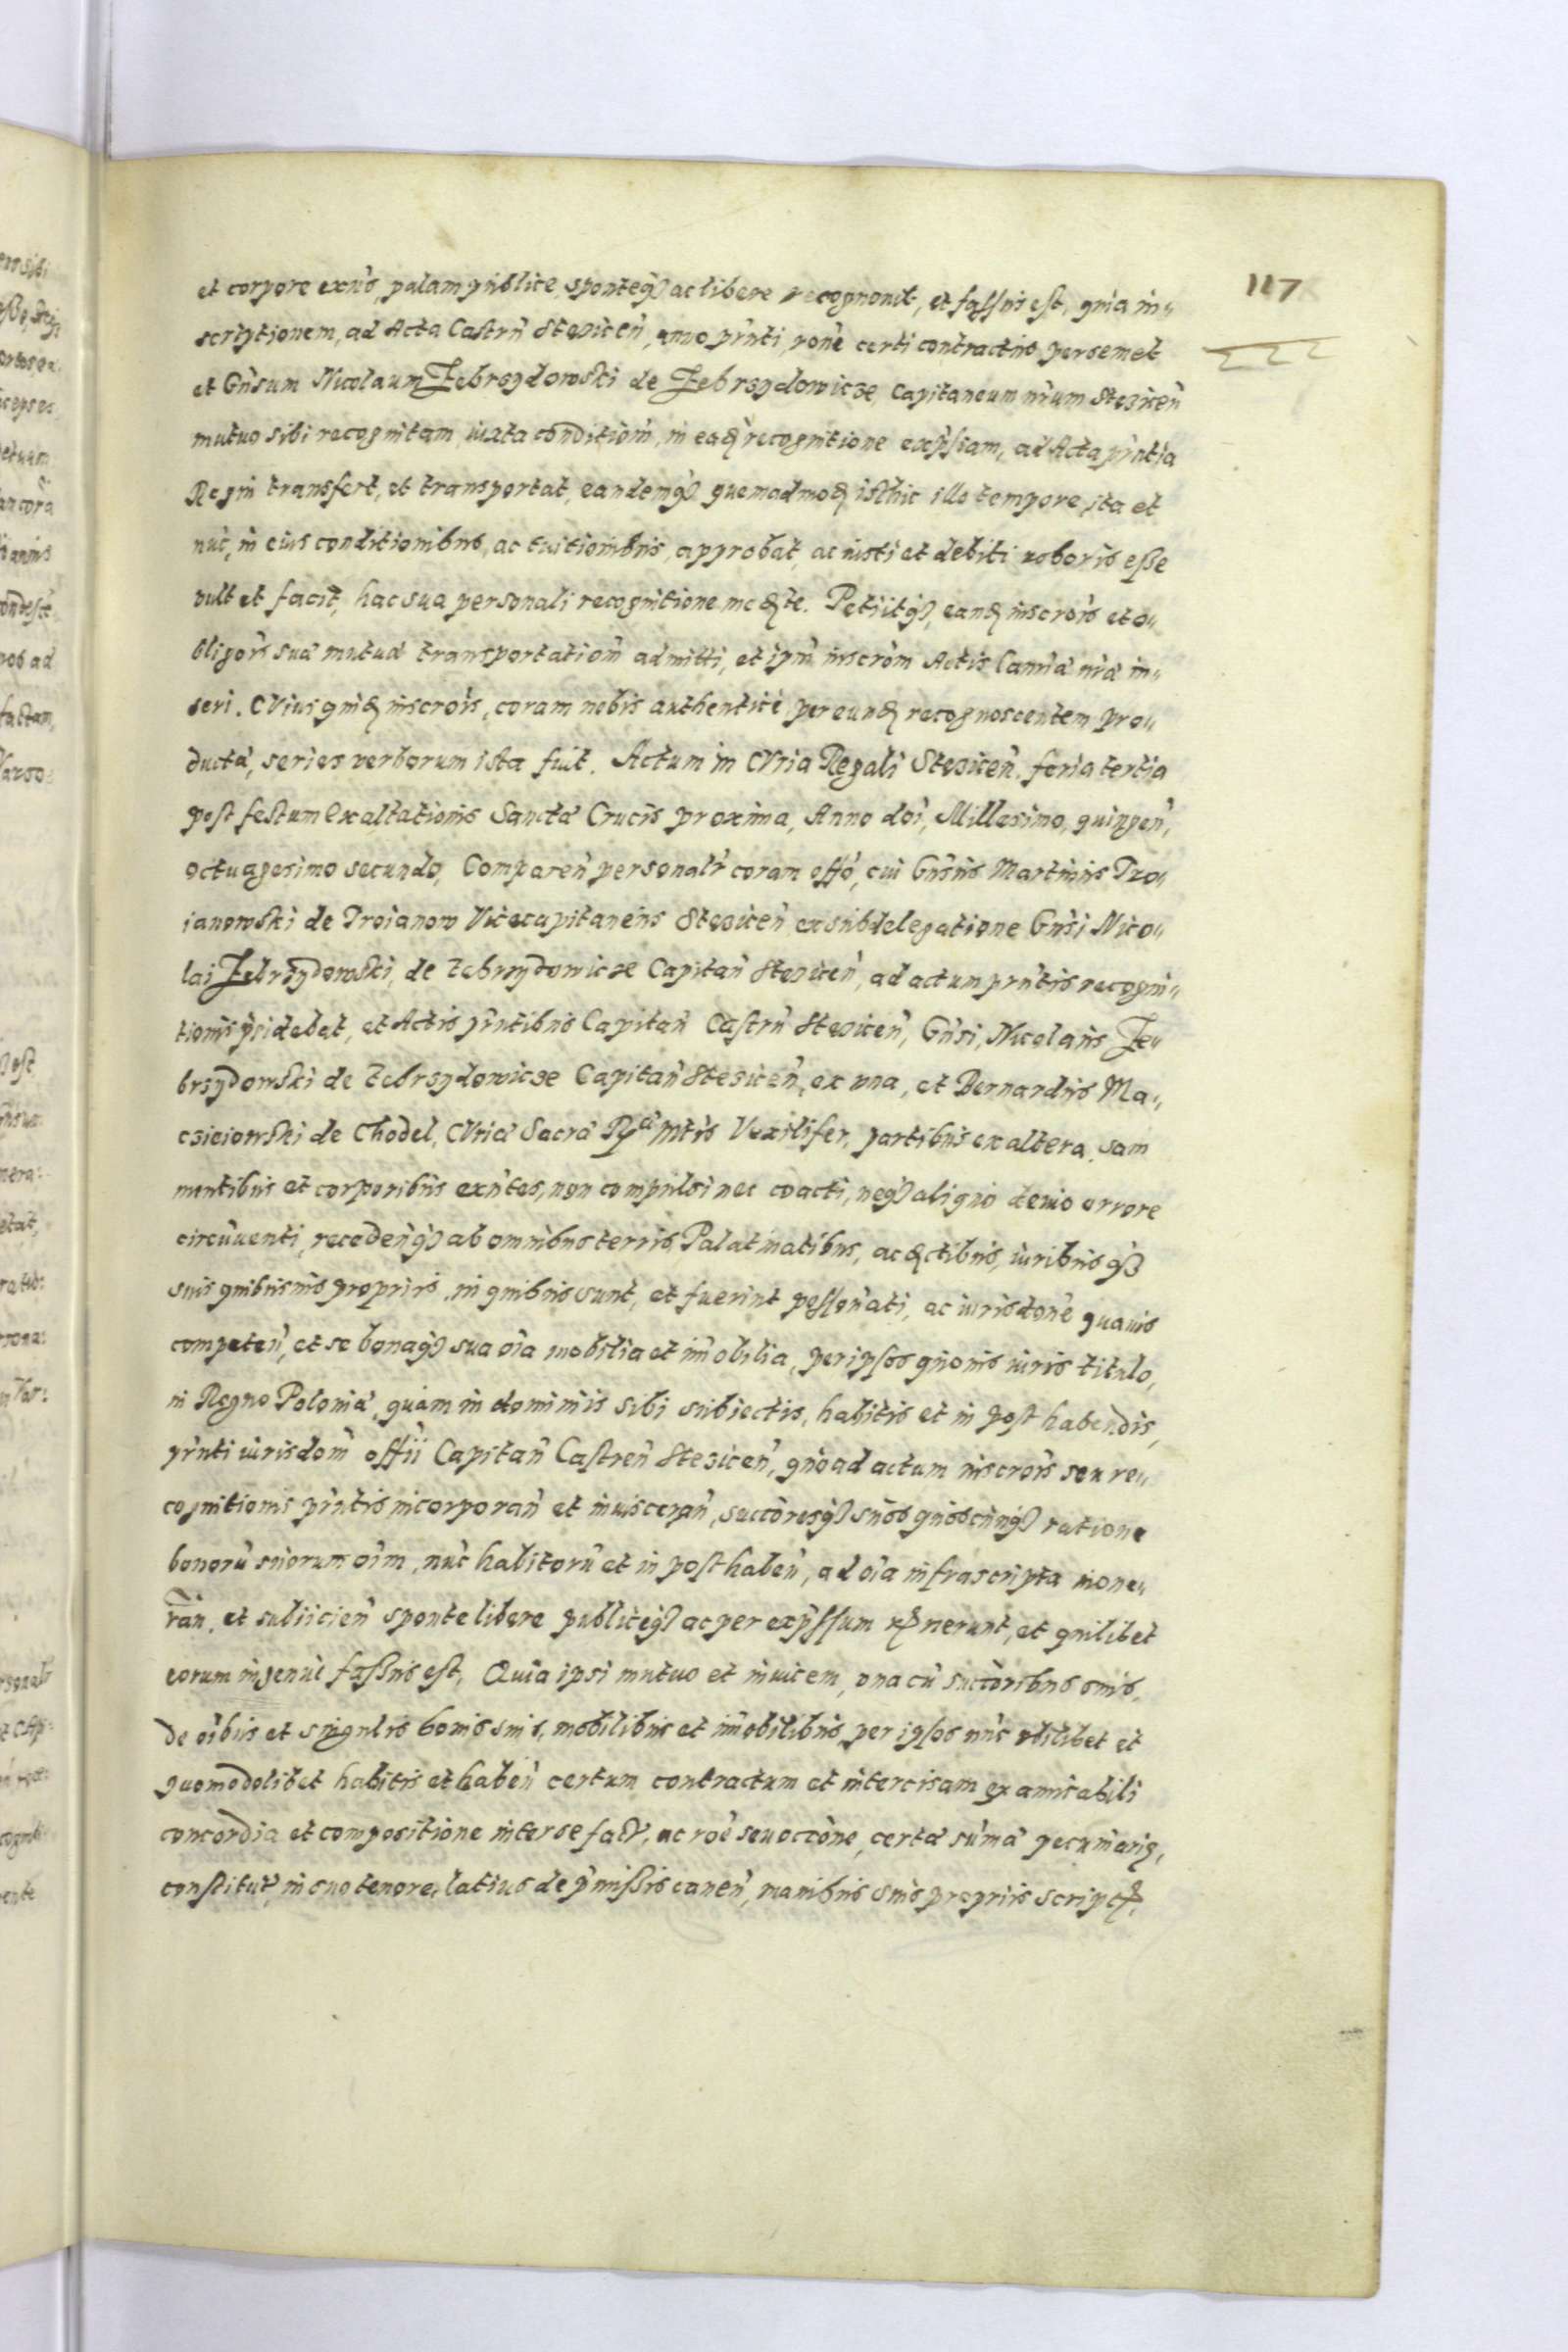 117
et corpore exñs, palam publice, sponteq₃ ac libere recognouit, et fassus est, quia in„
scriptionem, ad Acta Castrñ Stezicen̄, anno pr̃nti, rõne certi contractus per semet
et Gñsum Nicolaum Zebrzydowski de Zebrzydowicze, Capitaneum nr̃um Stezicen̄
mutuo sibi recognitam, iuxta conditiom̃, in eadẽ recognitione exp̃ssam, ad Acta pr̃ntia
Regni transfert, et transportat, eandemq₃ quemadmodũ isthic illo tempore, ita et
nũc, in eius conditionibus, ac tuitionibus, approbat, ac iusti et debiti roboris esse
vult et facit, hac sua personali recognitione medte. Petijtq₃, eand inscrõis et o„
bligõis suæ mutuæ transportatiom̃ admitti, et ipm̃ inscrõm Actis Canr̃æ nr̃æ in„
seri. Cuius quid inscrõis, coram nobis authentice per eund recognoscentem pro„
ductæ, series verborum ista fuit. Actum in Curia Regali Stezicen̄. feria tertia
post festum Exaltationis Sanctæ Crucis proxima, Anno dõi, Millesimo, quingen̄,
octuagesimo secundo, Comparen̄ personalr̃ coram offõ, cui Gñsus Martinus Tro„
ianowski de Troianow Vicecapitaneus Stezicen̄ ex subdelegatione Gñsi Nico„
lai Zebrzydowski, de Zebrzydowicze Capitan̄ Stezicen̄, ad actum pr̃ntis recogni„
tionis p̃sidebat, et Actis pr̃ntibus Capitan̄ Castrñ Stezicen̄, Gñsi, Nicolaus Ze„
brzydowski de Zebrzydowicze Capitan̄ Stezicen̄, ex vna, et Bernardus Ma„
czieiowski de Chodel, Curiæ Sacræ Rgæ Mtis Vexilifer, partibus ex altera, sani
mentibus et corporibus exñtes, non compulsi nec coacti, neq₃ aliquo deuio errore
circũuenti, recedenq₃ ab omnibus terris, Palatinatibus, ac dctibus, iuribusq₃
suis quibusuis proprijs, in quibus sunt, et fuerint possonati, ac iurisdõne quauis
competen̄, et se bonaq₃ sua oĩa mobilia et im̃obilia, per ipsos quouis iuris titulo,
in Regno Poloniæ, quam in dominijs sibi subiectis, habitis et in post habendis,
pr̃nti iurisdom̃ offij Capitan̄ Castren̄ Stezicen̄, quõad actum inscrõis seu re„
cognitionis pr̃ntis incorporan̄ et inuisceran̄, succõresq₃ suos quoscũnq₃ ratione
bonorũ suorum oĩm, nũc habitorũ et in post haben̄, ad oĩa infrascripta inone„
ran̄, et subijcien̄ sponte libere publiceq₃ ac per exp̃ssum rgnerunt, et quilibet
eorum ingenue fassus est, Quia ipsi mutuo et inuicem, vna cũ succõribus suis,
de oĩbus et singulis bonis suis, mobilibus et im̃obilibus, per ipsos nũc vbilibet et
quomodolibet habitis et haben̄ certum contractum et intercisam ex amicabili
concordia et compositione inter se fact̃, ac rõe seu occõne, certæ sũmæ pecuniariæ,
constitut̃, in suo tenore, latius de p̃missis canen̄, manibus suis proprijs script,